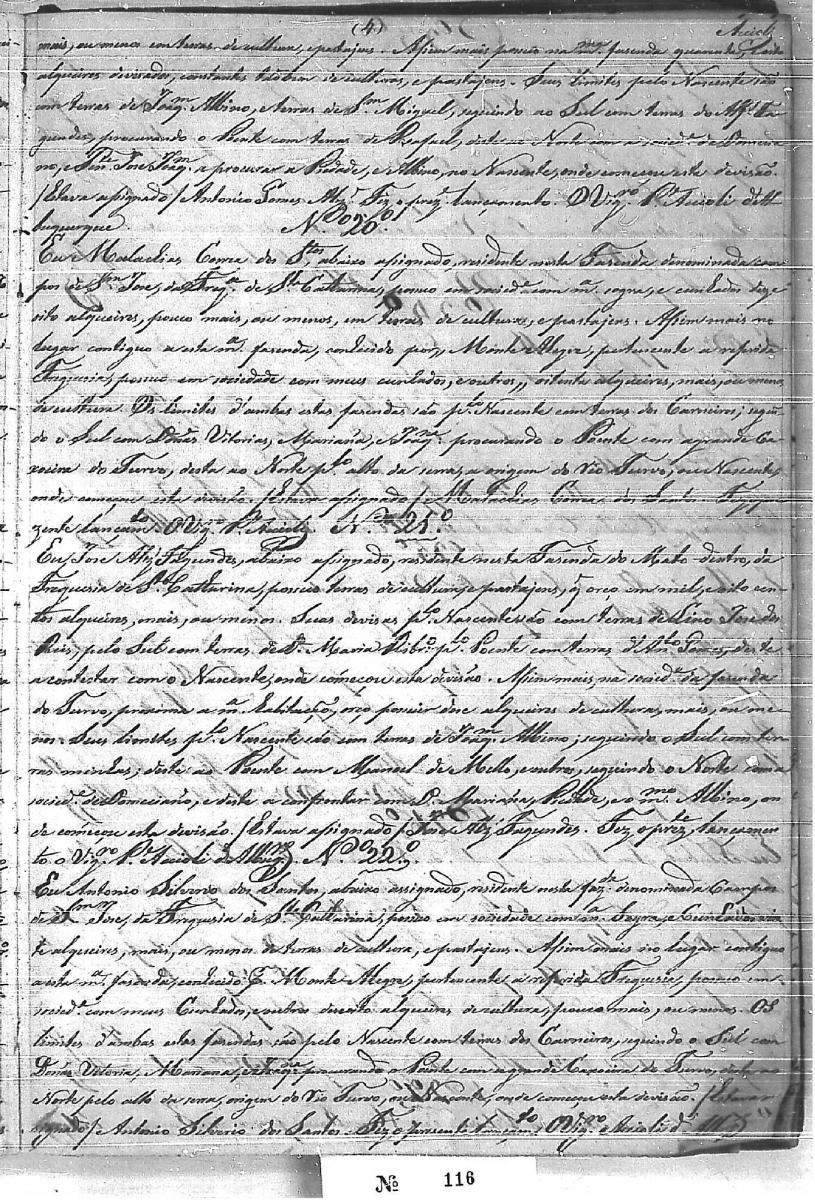 (4) Acioli
mais, ou menos em terras de cultura, e pastajens. Assim mais possuo na mma. fasenda quarenta, e oito
alqueires devisados, constantes tãobem de culturas, e pastagens. Seus limites pelo Nascente são
com terras de Joaqm. Albino, e terras de Jm. Miguel, seguindo ao Sul com terras do Alfs. Fa-
gundes, procurando o Poente com terras de Rafael, deste ao Norte com a socied.e de Pomecia-
no, e Tene. Jose Joaqm. a procurar a Piedade, e Albino, no Nascente, onde começou este devisão.
/ Estava assignado / Antonio Gomes Alz. Fez o preze. lançamento. O Vigro. Pe. Acioli d'Al-
buquerque. No. 20.o
Eu Malachias Correa dos Stos. abaixo assignado, residente nesta Fasenda denominada Cam-
pos de Jose, da Frega. de Sta. Catharina, possuo em socied.e com ma. sogra, e cunhados deze-
oito alqueires, pouco mais, ou menos, em terras de cultura, e pastajens. Assim mais no
lugar contiguo a esta ma. fasenda, conhecido por Monte Alegre, pertencente a referida
Freguesia, possuo em sociedade com meus cunhados, e outros, oitenta alqueires, mais, ou menos,
de cultura. Os limites d'ambas estas fasendas são plo. Nascente com terras dos Carneiros; seguin-
do o Sul com Donas Vitorias, Mariana, e Joaqna. procurando o Poente com a grande Ca-
xoeira do Turvo, desta ao Norte plo. alto da serra, a origem do Rio Turvo, ou Nascente,
onde começou esta divisão. / Estava assignado / Malachias Correa dos Santos. Fez o pre-
zente lançamto. O Vigro. Pe. Acioli. No. 21.o
Eu Jose Alz. Fagundes, abaixo assignado, residente nesta Fasenda do Mato-dentro, da
Freguesia de Sta. Catharina, possuo terras de cultura, e pastajens, q orço em mil, e oito cen-
tos alqueires, mais, ou menos. Suas devisas plo. Nascente são com terras de Lino Jose dos
Reis, pelo Sul com terras de D. Maria Ribro. plo. Poente com terras d'Anto. Soares, deste
a contestar com o Nascente, onde começou esta divisão. Assim mais, na socied.e da fasenda
do Turvo, proxima a ma. habitação, orço possuir dose alqueires de culturas, mais, ou me-
nos. Seus limites plo. Nascente são com terras de Joaqm. Albino; seguindo o Sul com ter-
ras minhas; deste ao Poente com Manoel de Mello, e outros, seguindo o Norte com a
socied.e de Pomeciano, e deste a confrontar com D. Mariana, Piedade, e o mmo. Albino, on-
de começou esta devisão. / Estava assignado / Jose Alz. Fagundes. Fez o preze. lançamen-
to. o Vigro. Pe. Acioli d'Albuqe. No. 22.o
Eu Antonio Silverio dos Santos, abaixo assignado, residente nesta faz.da denominada Campos
de Jose, da Freguesia de Sta. Catharina, possuo em sociedade com ma. Sogra, e Cunhados vin-
te alqueires, mais, ou menos de terras de cultura, e pastajens. Assim mais no lugar contiguo
a esta ma. fasenda, conhecido Monte-Alegre, pertencente a referida Freguesia, possuo em
socied.e com meus Cunhado, e outros alqueires de cultura, pouco mais, ou menos. Os
limites d'ambas estas fasendas são pelo Nascente com terras dos Carneiros, seguindo o Sul com
Donas Vitoria, Mariana, e Joaqna. procurando o Poente com a grande Caxoeira do Turvo, desta ao
Norte pelo alto da serra, origem do Rio Turvo, ou Nascente, onde começou esta devisão. / Estava as-
signado / Antonio Silverio dos Santos. Fez o presente lançamto. O Vigro. Acioli d'Albuqe.
No 116